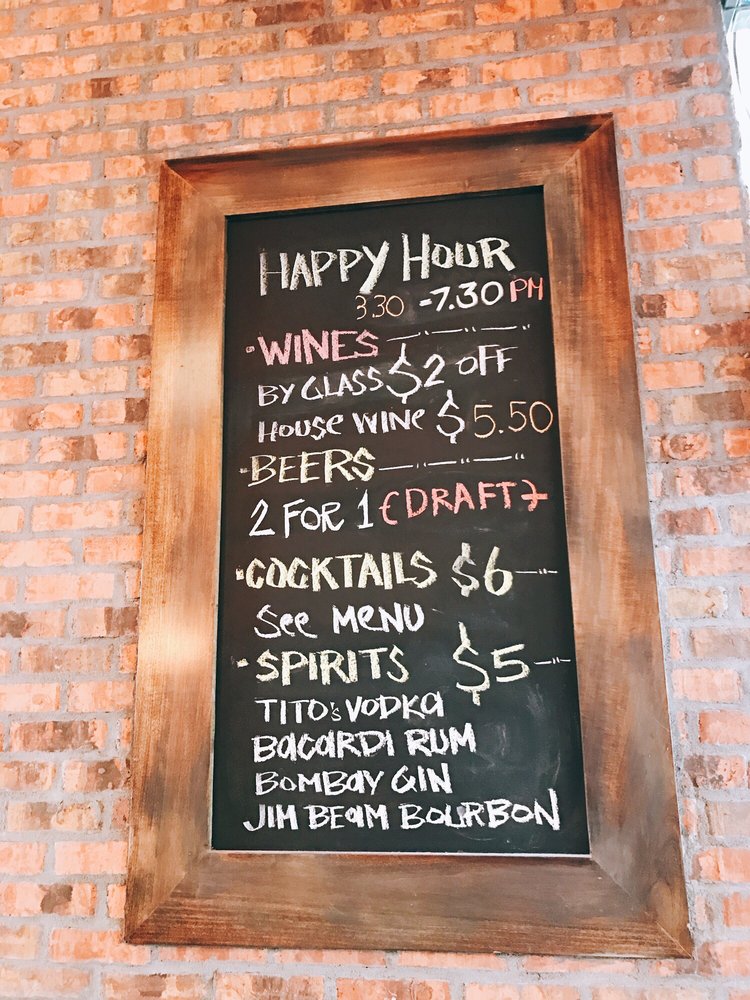 HAPPY HOUR
3.30 -7.30 PM
·WINES
BY GLASS $2 OFF
HOUSE WINE $5.50
·BEERS
2 FOR 1 {DRAFT}
·COCKTAILS $6
See MENU
·SPIRITS $5
TITO's VODKA
BACARDI RUM
BOMBAY GIN
JIM BEAM BOURBON